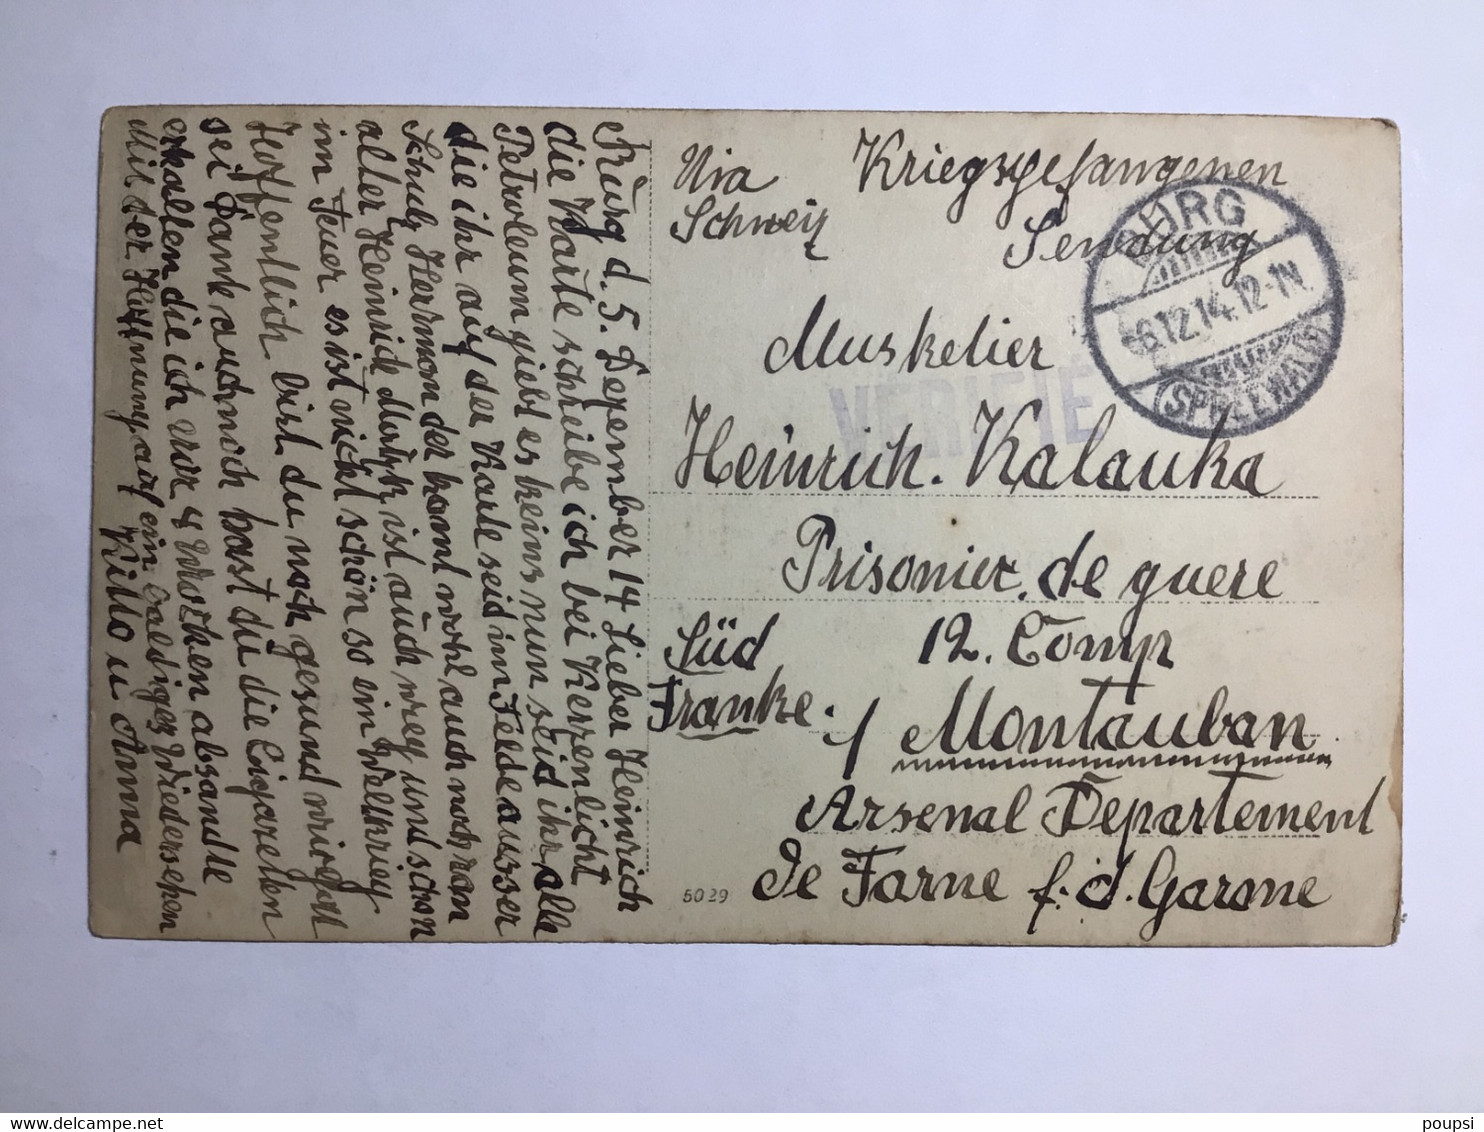 Burg d. 5. Dezember 14 Lieber Heinrich
die Karte schreibe ich bei Kerzenlicht
Petroleum giebt es keins nun seid ihr alle
die ihr auf der Karte seid im Felde ausser
Schulz Herrmon der komt wohl auch noch ran
aller Heinrich ist auch weg und schon
im Feuer es ist nicht schön so ein Weltkrieg
Hoffentlich bist du noch gesund
sei Dank auch noch hast du die Cigaretten
erhalten die ich vor 4 Wochen absandte
Mit der Hoffnung auf ein baldiges Wiedersehen
u Anna
Via
Schweiz
Kriegsgefangenen
Sendung
BURG
-6.12.14.12-1N
(SPREEWALD)
VERIFIE
Muskelier
Heinrich. Kalauka
Prisonier. de guere
12. Comp
Süd
Franke.
Montauban
Arsenal Departement
De Farne f. d. Garone
5029
poupsi